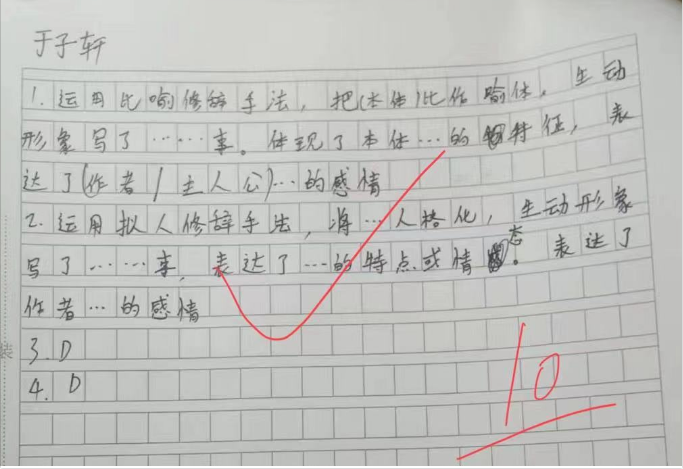 于子轩
1.运用比喻修辞手法，把(本体)比作喻体，生动
形象写了……事。体现了本体…的特征，表
达了(作者/主人公)…的感情
2.运用拟人修辞手法，将…人格化，生动形象
写了……事，表达了…的特点或情态。表达了
作者…的感情
3.D
4.D
10
装